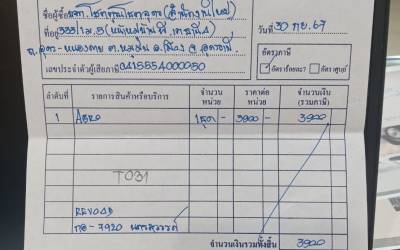 ชื่อผู้ซื้อ หจก. โชคคูณโชคอุดร (สำนักงานใหญ่)
วันที่ 30 กย. 67
ที่อยู่ 333/1 ม.8
ถ.อุดร-หนองคาย ต.หมูม่น อ.เมือง จ.อุดรธานี
อัตราภาษี
อัตราร้อยละ 7 อัตราศูนย์
เลขประจำตัวผู้เสียภาษี 0415554000050
ลำดับที่ รายการสินค้าหรือบริการ จำนวนหน่วย ราคาต่อหน่วย จำนวนเงิน (รวมภาษี)
1 AERO 1ชุด - 3900 - 3900
TO31
REVOOD
กอ-7920 นครสวรรค์
จำนวนเงินรวมทั้งสิ้น 3900